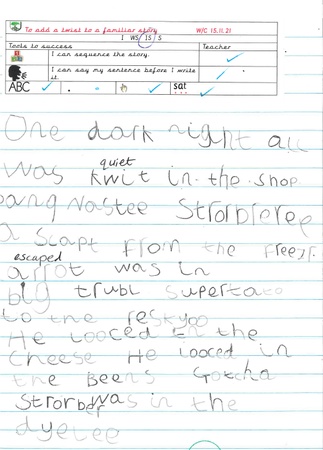 To add a twist to a familiar story W/C 15.11.21
I WS IS S
Tools to success Teacher
I can sequence the story.
I can say my sentence before I write
it.
ABC . sat
One dark night all
quiet
was kwit in the shop
bang nastee
a scapt from the
escaped
was in
big trubl supertato
to the reskyoo
He looced in the
cheese He looced in
the Beens Gotcha
Strorber was in the
dyetee